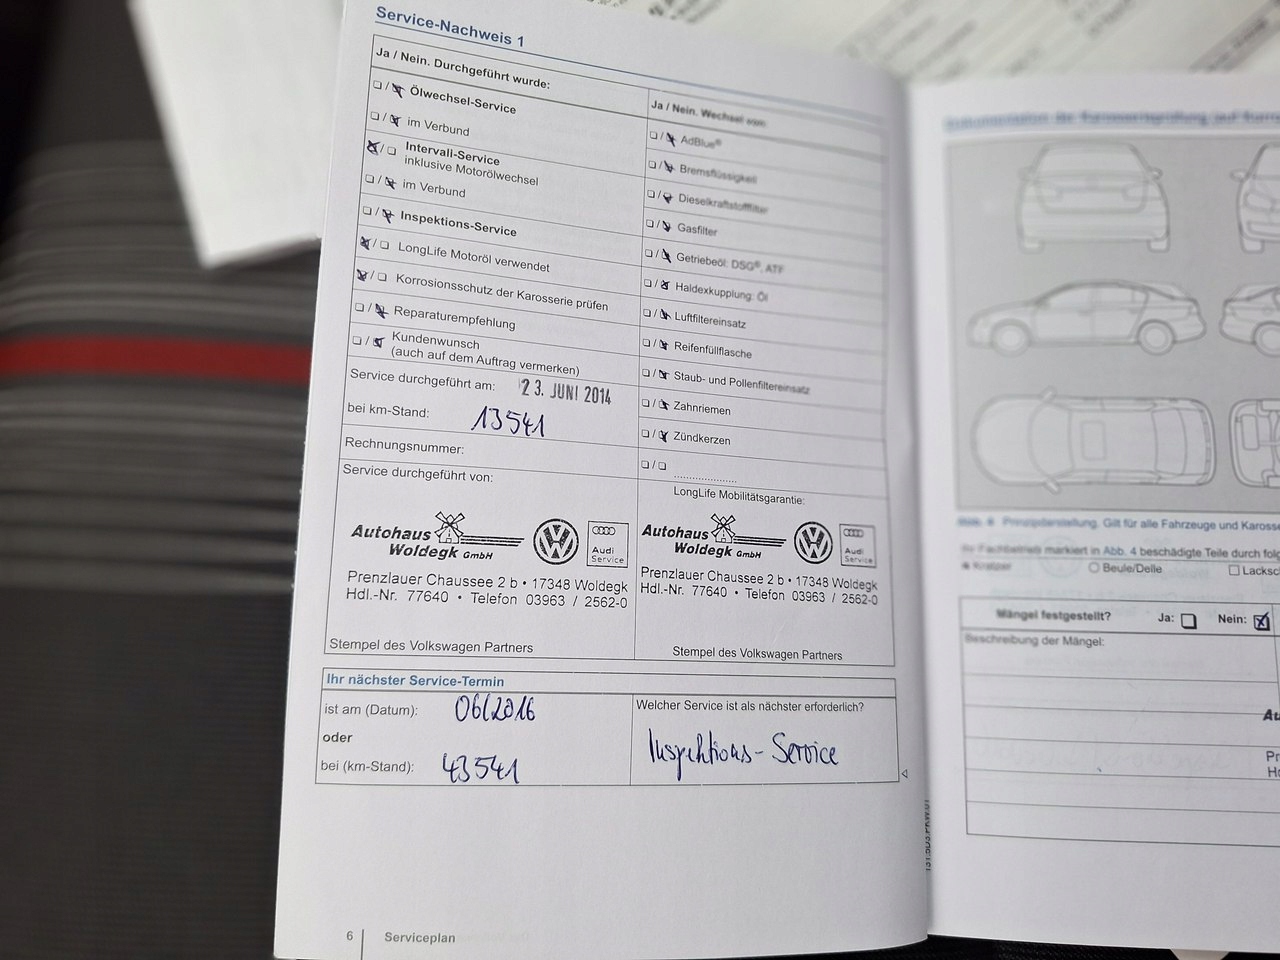 Service-Nachweis 1
Ja / Nein. Durchgeführt wurde:
Ölwechsel-Service
im Verbund
Intervall-Service
inklusive Motorölwechsel
im Verbund
Inspektions-Service
LongLife Motoröl verwendet
Korrosionsschutz der Karosserie prüfen
Reparaturempfehlung
Kundenwunsch
(auch auf dem Auftrag vermerken)
Service durchgeführt am: 23. JUNI 2014
bei km-Stand: 13541
Rechnungsnummer:
Service durchgeführt von:
Autohaus
Woldegk GmbH
Audi
Service
Prenzlauer Chaussee 2 b • 17348 Woldegk
Hdl.-Nr. 77640 • Telefon 03963 / 2562-0
Stempel des Volkswagen Partners
Ja / Nein. Wechsel vom:
AdBlue®
Bremsflüssigkeit
Dieselkraftstofffilter
Gasfilter
Getriebeöl: DSG®, ATF
Haldexkupplung: Öl
Luftfiltereinsatz
Reifenfüllflasche
Staub- und Pollenfiltereinsatz
Zahnriemen
Zündkerzen
LongLife Mobilitätsgarantie:
Autohaus
Woldegk GmbH
Audi
Service
Prenzlauer Chaussee 2 b • 17348 Woldegk
Hdl.-Nr. 77640 • Telefon 03963 / 2562-0
Stempel des Volkswagen Partners
Ihr nächster Service-Termin
ist am (Datum): 06/2016
oder
bei (km-Stand): 43541
Welcher Service ist als nächster erforderlich?
Inspektions-Service
6 Serviceplan
Abb. 4 Prinzipdarstellung. Gilt für alle Fahrzeuge und
Ihr Fachbetrieb markiert in Abb. 4 beschädigte Teile durch
Kratzer Beule/Delle
Mängel festgestellt? Ja: Nein:
Beschreibung der Mängel: